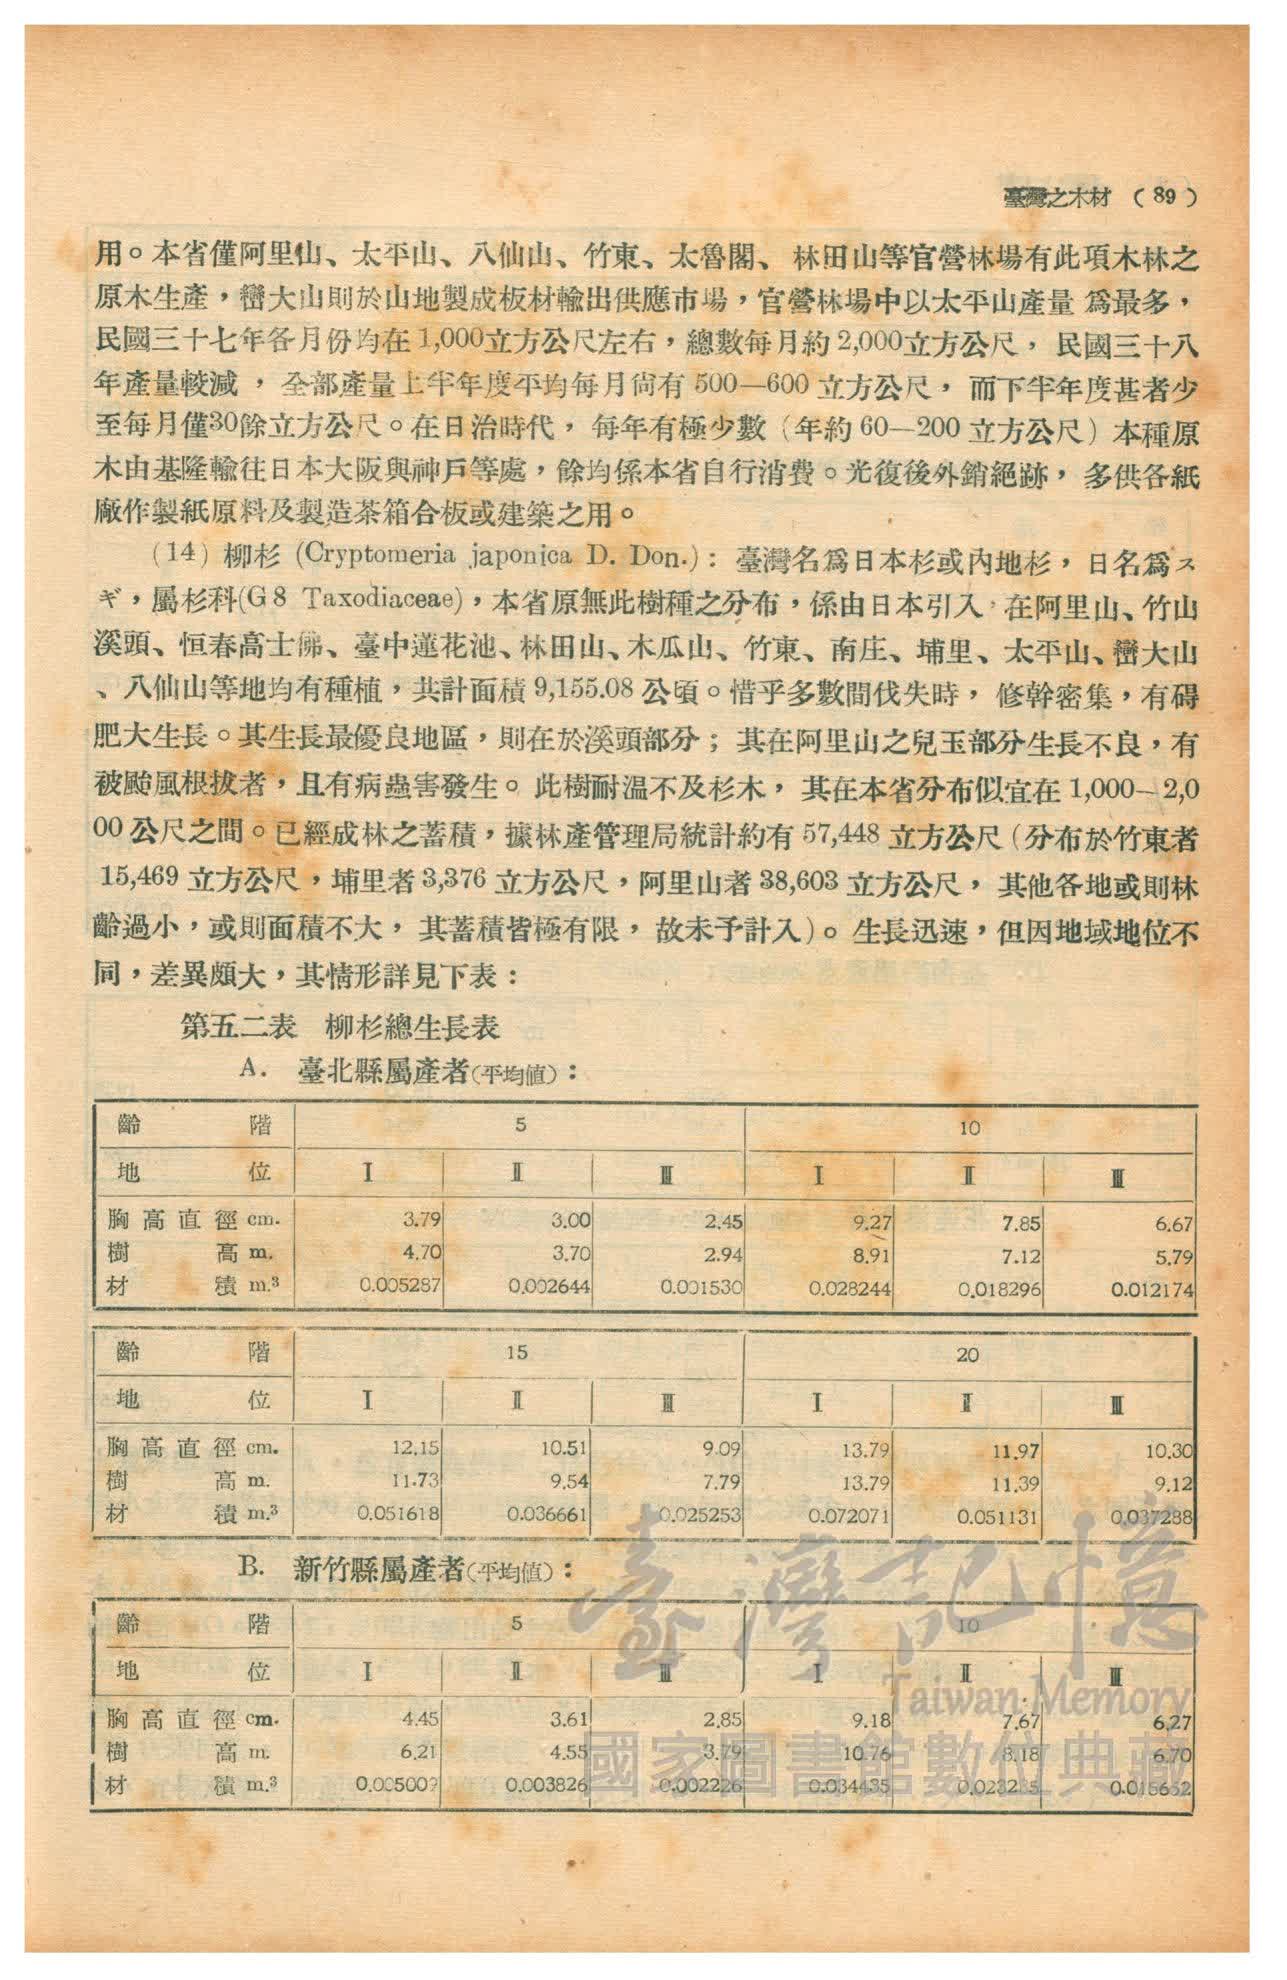 臺灣之木材 （89）
用。本省僅阿里山、太平山、八仙山、竹東、太魯閣、林田山等官營林場有此項木林之
原木生產，巒大山則於山地製成板材輸出供應市場，官營林場中以太平山產量爲最多，
民國三十七年各月份均在1,000立方公尺左右，總數每月約2,000立方公尺，民國三十八
年產量較減，全部產量上半年度平均每月尙有500—600立方公尺，而下半年度甚者少
至每月僅30餘立方公尺。在日治時代，每年有極少數（年約60—200立方公尺）本種原
木由基隆輸往日本大阪與神戶等處，餘均係本省自行消費。光復後外銷絕跡，多供各紙
廠作製紙原料及製造茶箱合板或建築之用。
(14) 柳杉 (Cryptomeria japonica D. Don.)：臺灣名爲日本杉或內地杉，日名爲ス
ギ，屬杉科(G8 Taxodiaceae)，本省原無此樹種之分布，係由日本引入，在阿里山、竹山
溪頭、恒春高士佛、臺中蓮花池、林田山、木瓜山、竹東、南庄、埔里、太平山、巒大山
、八仙山等地均有種植，共計面積9,155.08公頃。惜乎多數間伐失時，修幹密集，有碍
肥大生長。其生長最優良地區，則在於溪頭部分；其在阿里山之兒玉部分生長不良，有
被颱風根拔者，且有病蟲害發生。此樹耐溫不及杉木，其在本省分布似宜在1,000—2,0
00公尺之間。已經成林之蓄積，據林產管理局統計約有57,448立方公尺（分布於竹東者
15,469立方公尺，埔里者3,376立方公尺，阿里山者38,603立方公尺，其他各地或則林
齡過小，或則面積不大，其蓄積皆極有限，故未予計入）。生長迅速，但因地域地位不
同，差異頗大，其情形詳見下表：
第五二表 柳杉總生長表
A. 臺北縣屬產者(平均值)：
齡階 5 10
地位 Ⅰ Ⅱ Ⅲ Ⅰ Ⅱ Ⅲ
胸高直徑 cm. 3.79 3.00 2.45 9.27 7.85 6.67
樹高 m. 4.70 3.70 2.94 8.91 7.12 5.79
材積 m.³ 0.005287 0.002644 0.001530 0.028244 0.018296 0.012174
齡階 15 20
地位 Ⅰ Ⅱ Ⅲ Ⅰ Ⅱ Ⅲ
胸高直徑 cm. 12.15 10.51 9.09 13.79 11.97 10.30
樹高 m. 11.73 9.54 7.79 13.79 11.39 9.12
材積 m.³ 0.051618 0.036661 0.025253 0.072071 0.051131 0.037288
B. 新竹縣屬產者(平均值)：
齡階 5 10
地位 Ⅰ Ⅱ Ⅲ Ⅰ Ⅱ Ⅲ
胸高直徑 cm. 4.45 3.61 2.85 9.18 7.67 6.27
樹高 m. 6.21 4.55 3.79 10.76 8.18 6.70
材積 m.³ 0.003826 0.002226 0.034435
臺灣記憶
Taiwan Memory
國家圖書館數位典藏